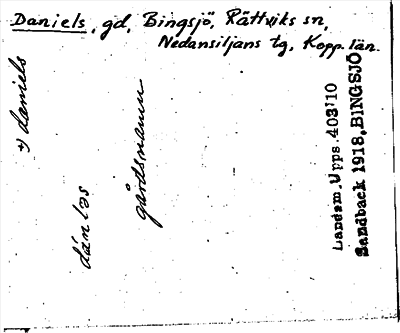 Daniels, gd, Bingsjö, Rättviks sn,
Nedansiljans tg, Kopp. län.
*) daniels
dänləs
gårdsnamn
Landsm. Upps. 403:10
Sandback 1918, BINGSJÖ